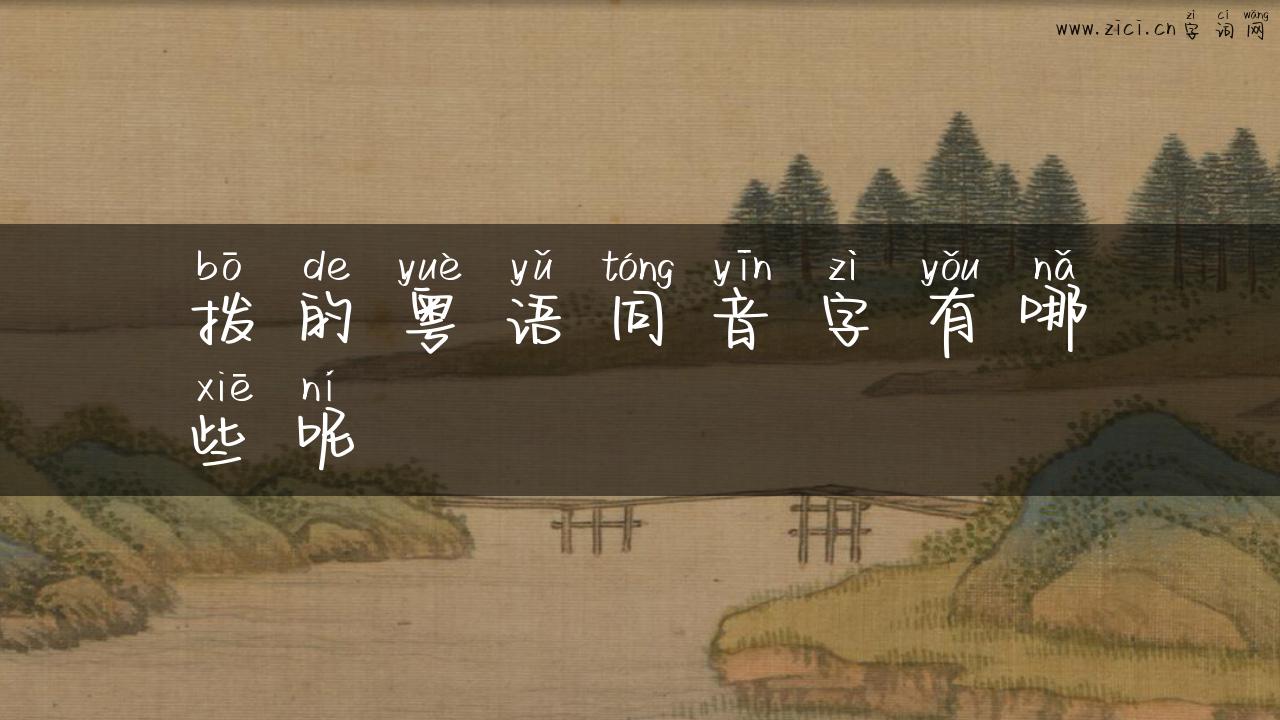 zì cí wǎng
www.zici.cn字词网
bō de yuè yǔ tóng yīn zì yǒu nǎ
拨的粤语同音字有哪
xiē ní
些呢